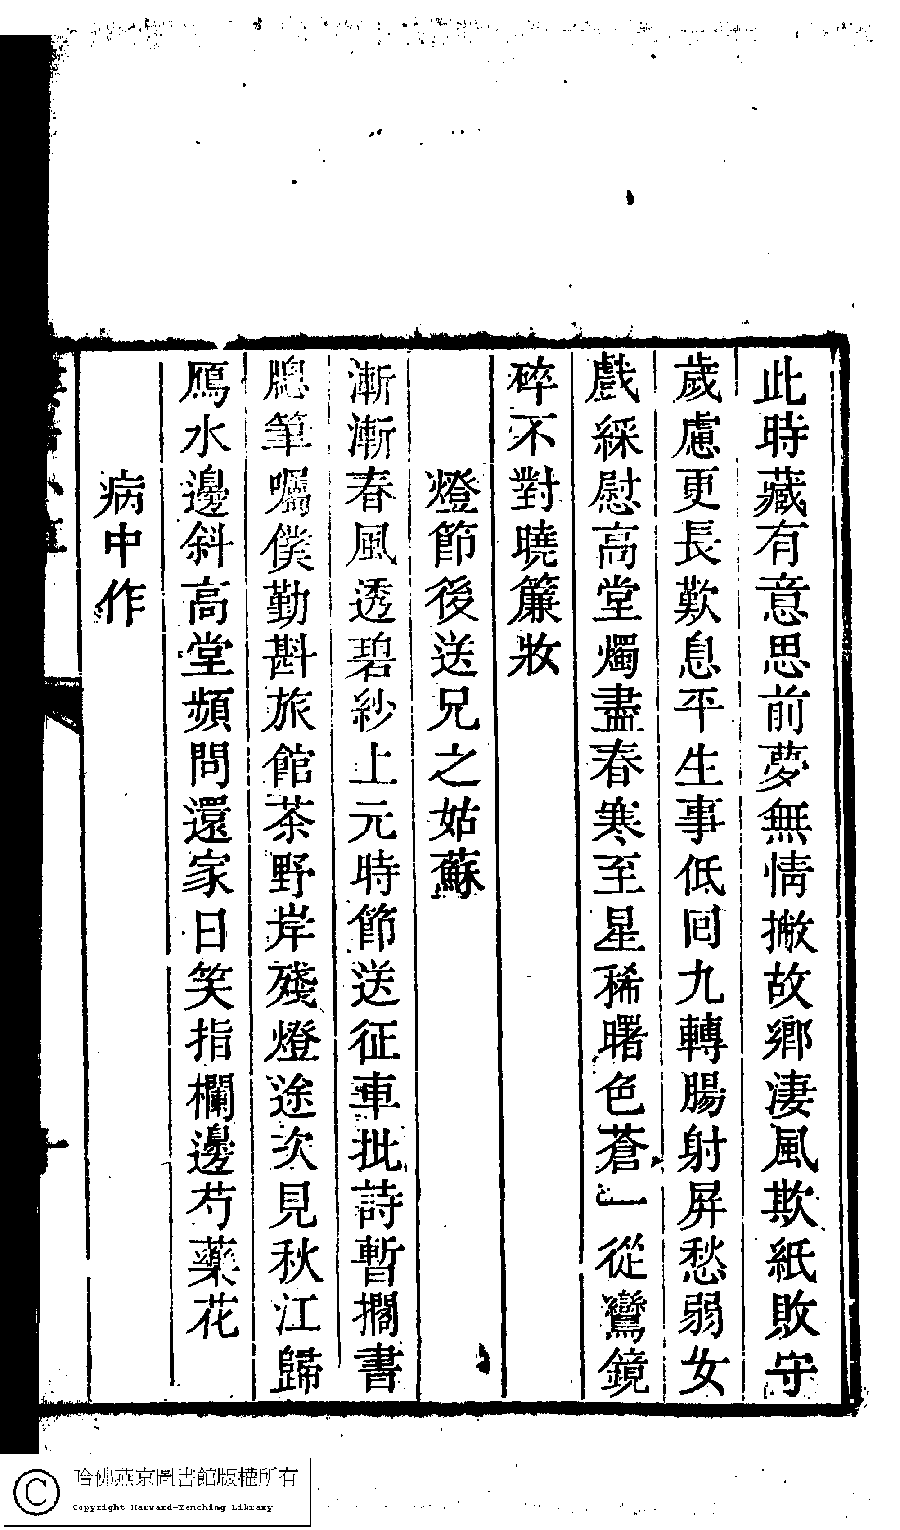 此時藏有意思前夢無情撇故鄉淒風欺紙敗守
歲慮更長歎息平生事低回九轉腸射屏愁弱女
戲綵慰高堂燭盡春寒至星稀曙色蒼一從鸞鏡
碎不對曉簾妝
燈節後送兄之姑蘇
漸漸春風透碧紗上元時節送征車批詩暫擱書
牕筆囑僕勤斟旅館茶野岸殘燈途次見秋江歸
鴈水邊斜高堂頻問還家日笑指欄邊芍藥花
病中作
哈佛燕京圖書館版權所有
Copyright Harvard-Yenching Library